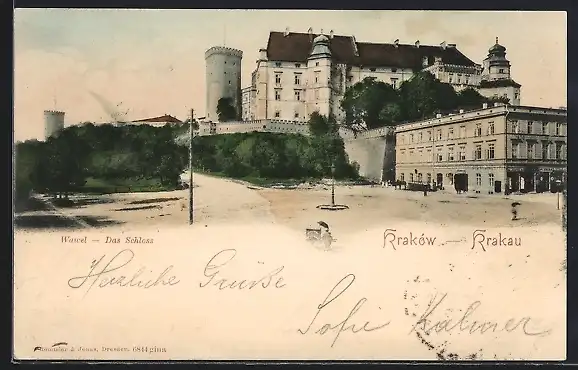 Wawel — Das Schloss
Kraków — Krakau
Herzliche Grüße
Sofie Kalmer
Stengel & Co., Dresden. 6844